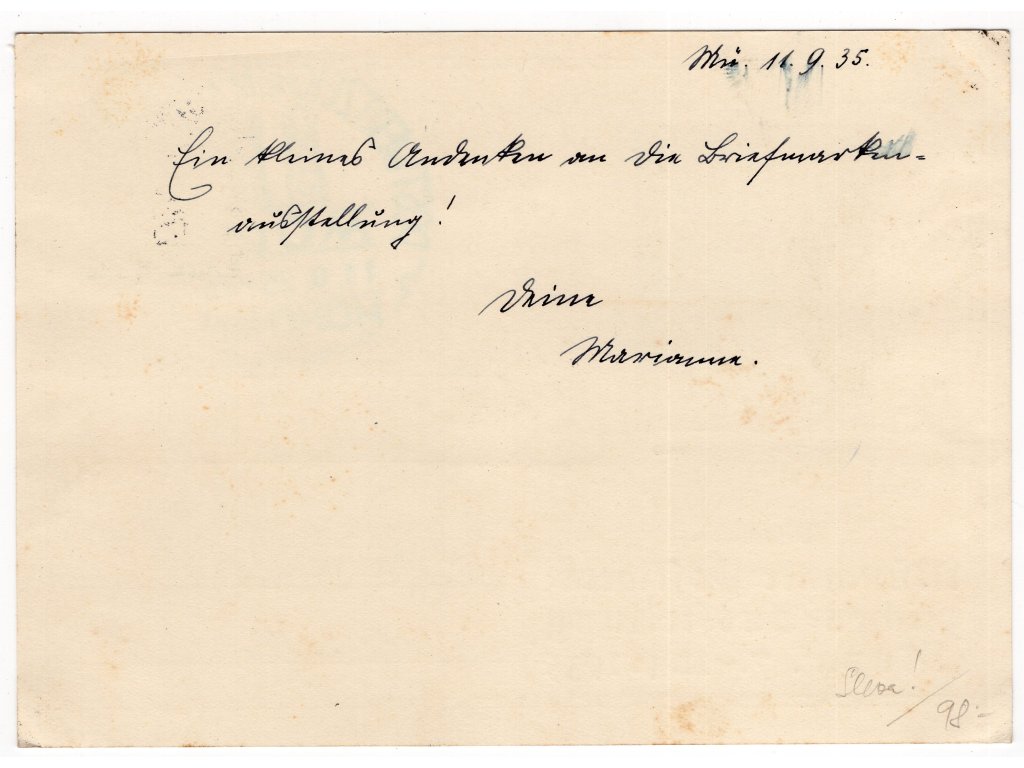 Mü. 11. 9. 35.
Ein kleines Andenken an die Briefmarken=
ausstellung!
Deine
Marianne.
98.-